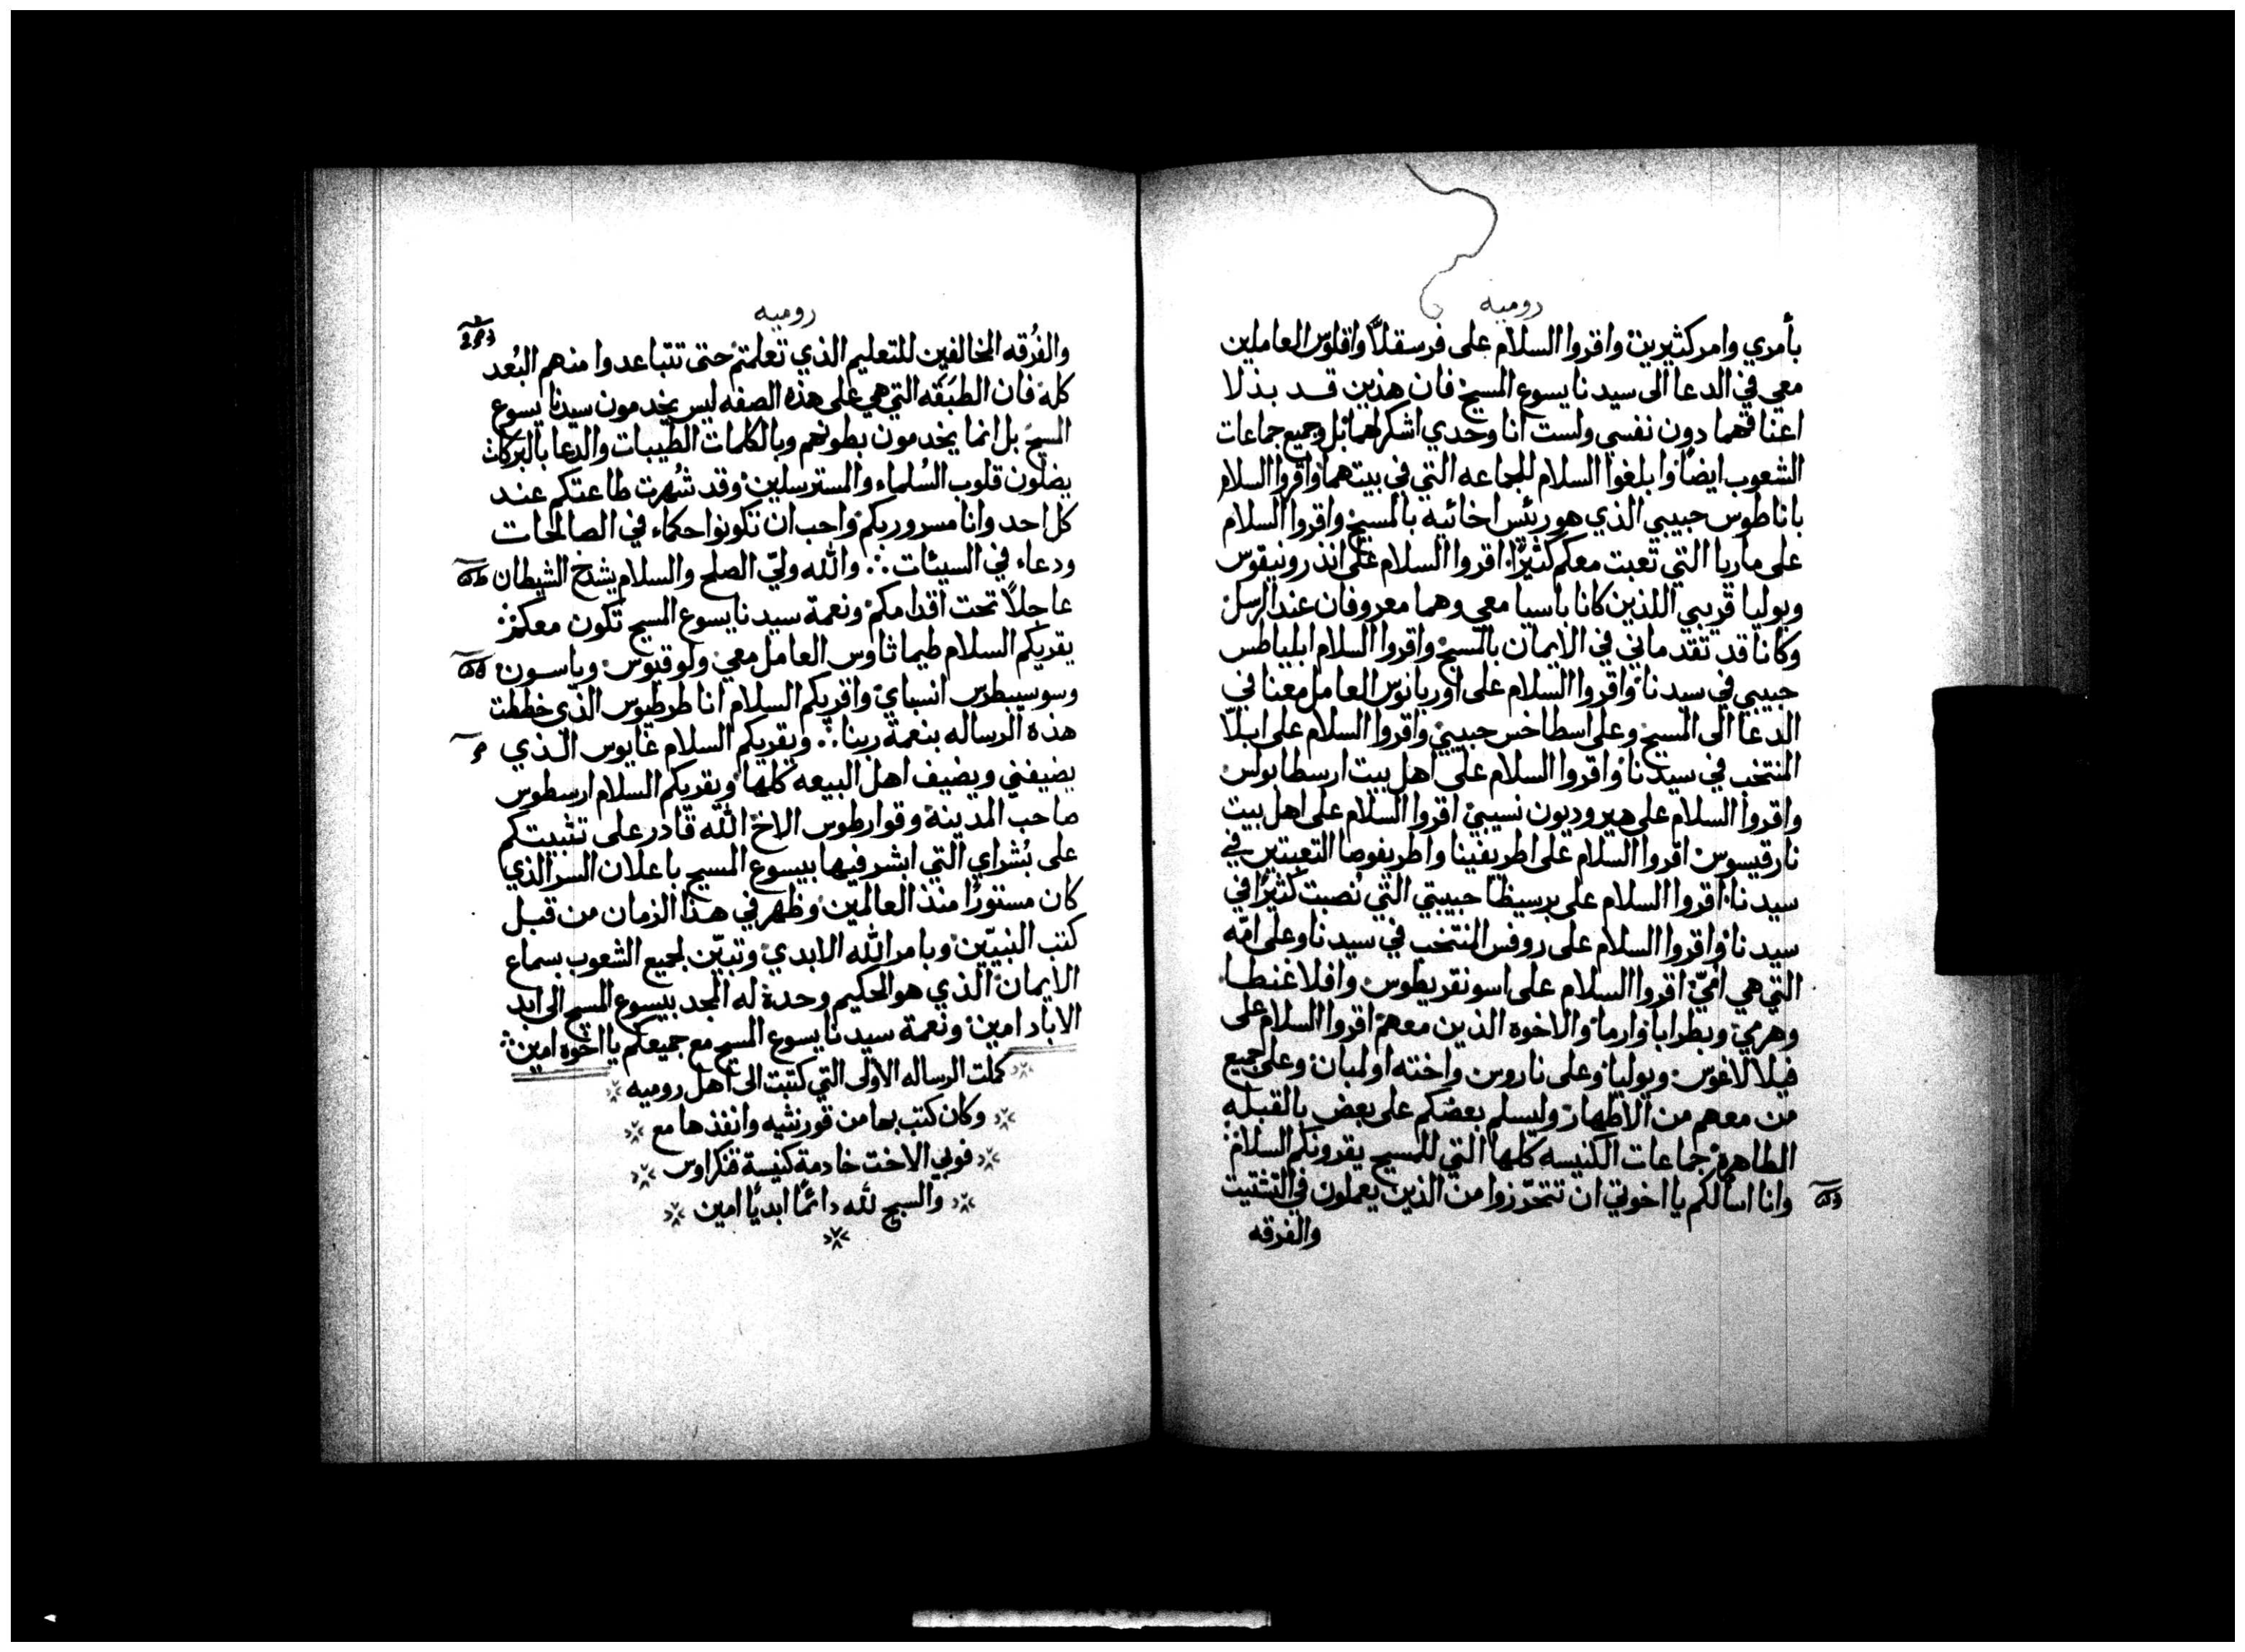 روميه
بأمري وامر كثيرين واقروا السلام على فرسقلا واقلوس العاملين
معي في الدعا الى سيدنا يسوع المسيح فان هذين قد بذلا
اعناقهما دون نفسي ولست انا وحدي اشكر لهما بل وجميع جماعات
الشعوب ايضًا وابلغوا السلام للجماعه التي في بيتهما واقروا السلام
باناطوس حبيبي الذي هو ريئس اخائيه بالمسيح واقروا السلام
على ماريا التي تعبت معكم كثيرًا اقروا السلام على اندرونيقوس
ويوليا قريبي اللذين كانا بأسيا معي وهما معروفان عند الرسل
وكانا قد تقدماني في الايمان بالمسيح واقروا السلام ابلياطس
حبيبي في سيدنا واقروا السلام على اوربانوس العامل معنا في
الدعا الى المسيح وعلى اسطاخس حبيبي واقروا السلام على ابلّا
المنتخب في سيدنا واقروا السلام على اهل بيت ارسطابولس
واقروا السلام على هيروديون نسيبي اقروا السلام على اهل بيت
نارقيسوس اقروا السلام على اطريفينا واطريفوصا التعبتين في
سيدنا اقروا السلام على برسيظا حبيبتي التي نصبت كثيرًا في
سيدنا واقروا السلام على روفس المنتخب في سيدنا وعلى امّه
التي هي امّي اقروا السلام على اسونقريطوس وافلاغنطا
وهرمي وبطرابا وارما والاخوه الذين معهم اقروا السلام على
فيلالاغوس ويوليا وعلى ناروس واخته اولمبان وعلى جميع
من معهم من الاطهار وليسلم بعضكم على بعض بالقبله
الطاهرة جماعات الكنيسه كلها التي للمسيح يقرونكم السلام
وانا اسألكم يا اخوتي ان تتحرّزوا من الذين يعملون في التشتيت
والفرقه
روميه
والفُرقه المخالفين للتعليم الذي تعلمتم حتى تتباعدوا منهم البُعد
كله فان الطبَقه التي هي على هذه الصفه ليس يخدمون سيدنا يسوع
المسيح بل انما يخدمون بطونهم وبالكلمات الطيبات والدعا بالبركات
يضلون قلوب السُلماء والمسترسلين وقد شُهرت طاعتكم عند
كل احد وانا مسرور بكم واحب ان تكونوا حكماء في الصالحات
ودعاء في السيئات ∴ والله وليّ الصلح والسلام يشدخ الشيطان
عاجلاً تحت اقدامكم ونعمة سيدنا يسوع المسيح تكون معكم
يقريكم السلام طيماثاوس العامل معي ولوقيوس وياسون
وسوسيبطرس انسباي واقريكم السلام انا طرطيوس الذي خططت
هذه الرساله بنعمة ربنا ∴ ويقريكم السلام غايوس الذي
يضيفني ويضيف اهل البيعه كلها ويقريكم السلام ارسطوس
صاحب المدينة وقوارطوس الاخ الله قادر على تثبيتكم
على بُشراي التي ابشر فيها بيسوع المسيح باعلان السر الذي
كان مستورًا منذ العالمين وظهر في هذا الزمان من قبل
كتب النبيّين وبامر الله الابدي وتبيّن لجميع الشعوب بسماع
الايمان الذي هو الحكيم وحدة له المجد بيسوع المسيح الى ابد
الاباد امين ونعمة سيدنا يسوع المسيح مع جميعكم يا اخوه امين
كملت الرساله الاولى التي كتبت الى اهل روميه
وكان كتب بها من قورنثيه وانفذها مع
فوبي الاخت خادمة كنيسة قنكراوس
والسبح لله دائمًا ابديًا امين